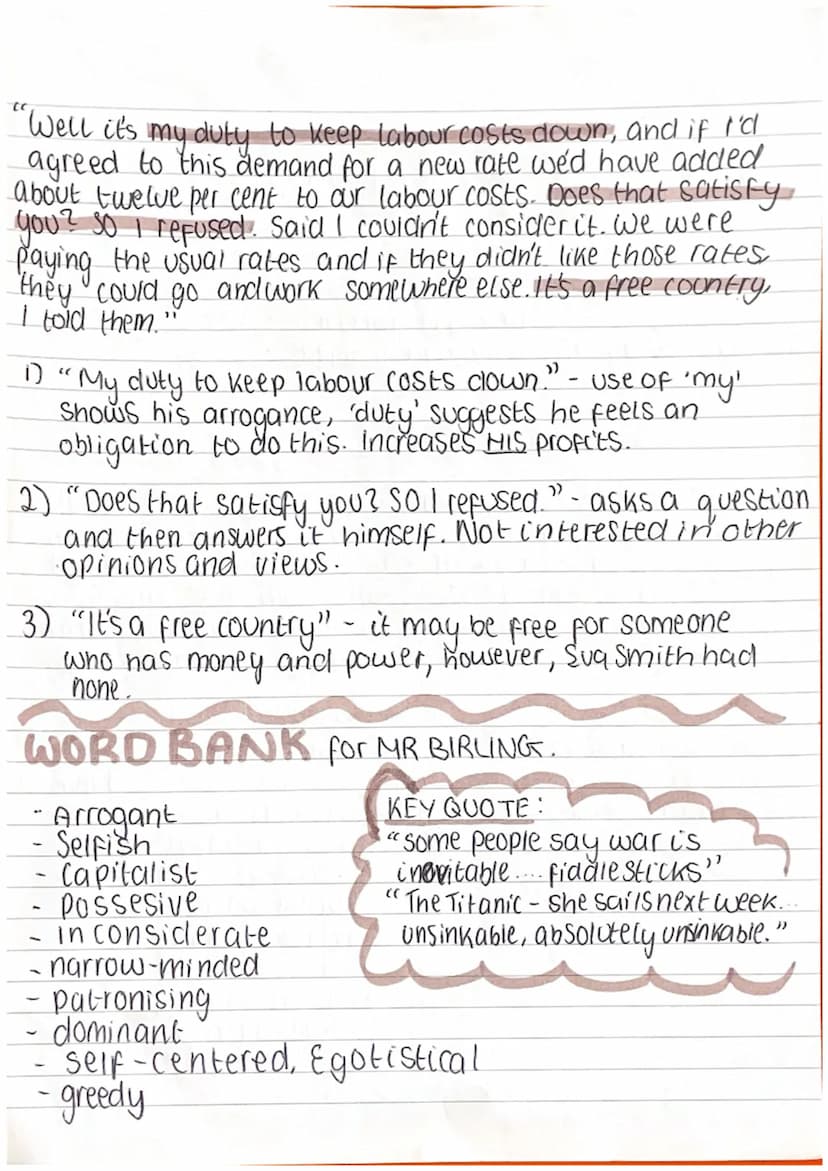 "Well it's my duty to keep labour costs down, and if I'd
agreed to this demand for a new rate we'd have added
about twelve per cent to our labour costs. Does that satisfy
you? So I refused. Said I couldn't consider it. We were
paying the usual rates and if they didn't like those rates
they could go and work somewhere else. It's a free country,
I told them."
1) "My duty to keep labour costs down." - use of 'my'
shows his arrogance, 'duty' suggests he feels an
obligation to do this. Increases HIS profits.
2) "Does that satisfy you? SO I refused." - asks a question
and then answers it himself. Not interested in other
opinions and views.
3) "It's a free country" - it may be free for someone
who has money and power, however, Eva Smith had
none.
WORD BANK for MR BIRLING.
- Arrogant
- Selfish
- Capitalist
- possesive
- inconsiderate
- narrow-minded
- patronising
- dominant
- self-centered, Egotistical
- greedy
KEY QUOTE:
"some people say war is
inevitable.... fiddlesticks"
"The Titanic - she sails next week...
unsinkable, absolutely unsinkable."